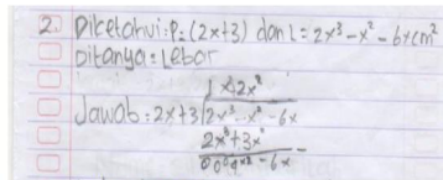 2. Diketahui: P = (2x+3) dan L = 2x³ - x² - 6x cm²
Ditanya: Lebar
Jawab: 2x+3 / 2x³ - x² - 6x
2x³ + 3x² -
x² - 6x